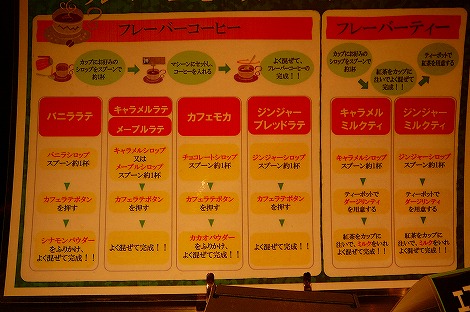 フレーバーコーヒー
カップにお好みの
シロップをスプーンで
約1杯
マシーンにセットし
コーヒーを入れる
よく混ぜて、
フレーバーコーヒーの
完成！！
バニララテ
バニラシロップ
スプーン約1杯
カフェラテボタン
を押す
シナモンパウダー
をふりかけ、
よく混ぜて完成！！
キャラメルラテ
メープルラテ
キャラメルシロップ
又は
メープルシロップ
スプーン約1杯
カフェラテボタン
を押す
よく混ぜて完成！！
カフェモカ
チョコレートシロップ
スプーン約1杯
カフェラテボタン
を押す
カカオパウダー
をふりかけ、
よく混ぜて完成！！
ジンジャー
ブレッドラテ
ジンジャーシロップ
スプーン約1杯
カフェラテボタン
を押す
よく混ぜて完成！！
フレーバーティー
カップにお好みの
シロップをスプーンで
約1杯
紅茶をカップに
注いでよく混ぜて
完成！！
ティーポットで
紅茶を用意する
キャラメル
ミルクティ
キャラメルシロップ
スプーン約1杯
ティーポットで
ダージリンティ
を用意する
紅茶をカップに
注いで、ミルクをいれ
よく混ぜて完成！！
ジンジャー
ミルクティ
ジンジャーシロップ
スプーン約1杯
ティーポットで
ダージリンティ
を用意する
紅茶をカップに
注いで、ミルクをいれ
よく混ぜて完成！！